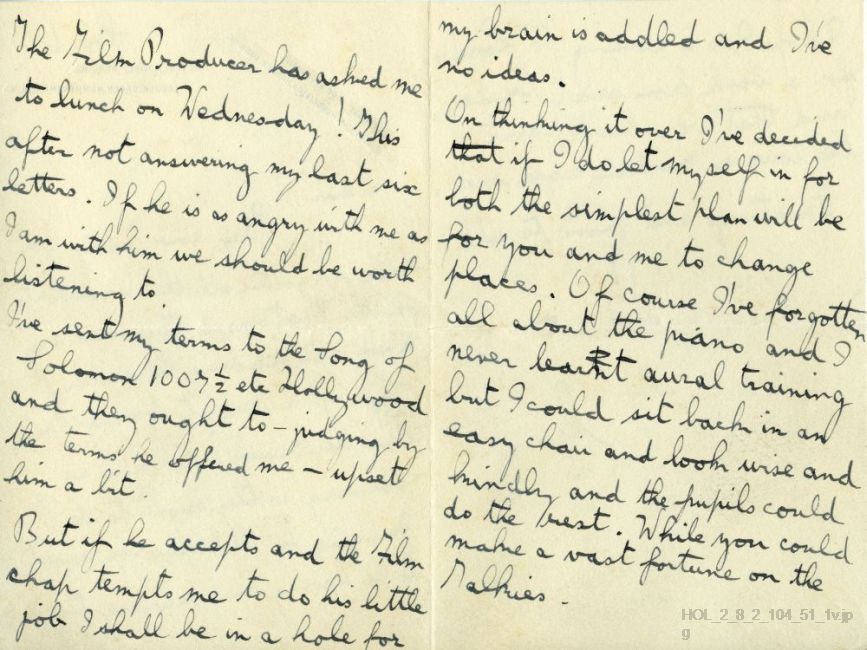 The Film Producer has asked me
to lunch on Wednesday! This
after not answering my last six
letters. If he is as angry with me as
I am with him we should be worth
listening to.
I've sent my terms to the Song of
Solomon 1007½ etc Hollywood
and they ought to - judging by
the terms he offered me - upset
him a bit.
But if he accepts and the Film
chap tempts me to do his little
job I shall be in a hole for
my brain is addled and I've
no ideas.
On thinking it over I've decided
that if I do let myself in for
both the simplest plan will be
for you and me to change
places. Of course I've forgotten
all about the piano and I
never learnt aural training
but I could sit back in an
easy chair and look wise and
kindly and the pupils could
do the rest. While you could
make a vast fortune on the
Talkies.
HOL_2_8_2_104_51_1v.jp
g